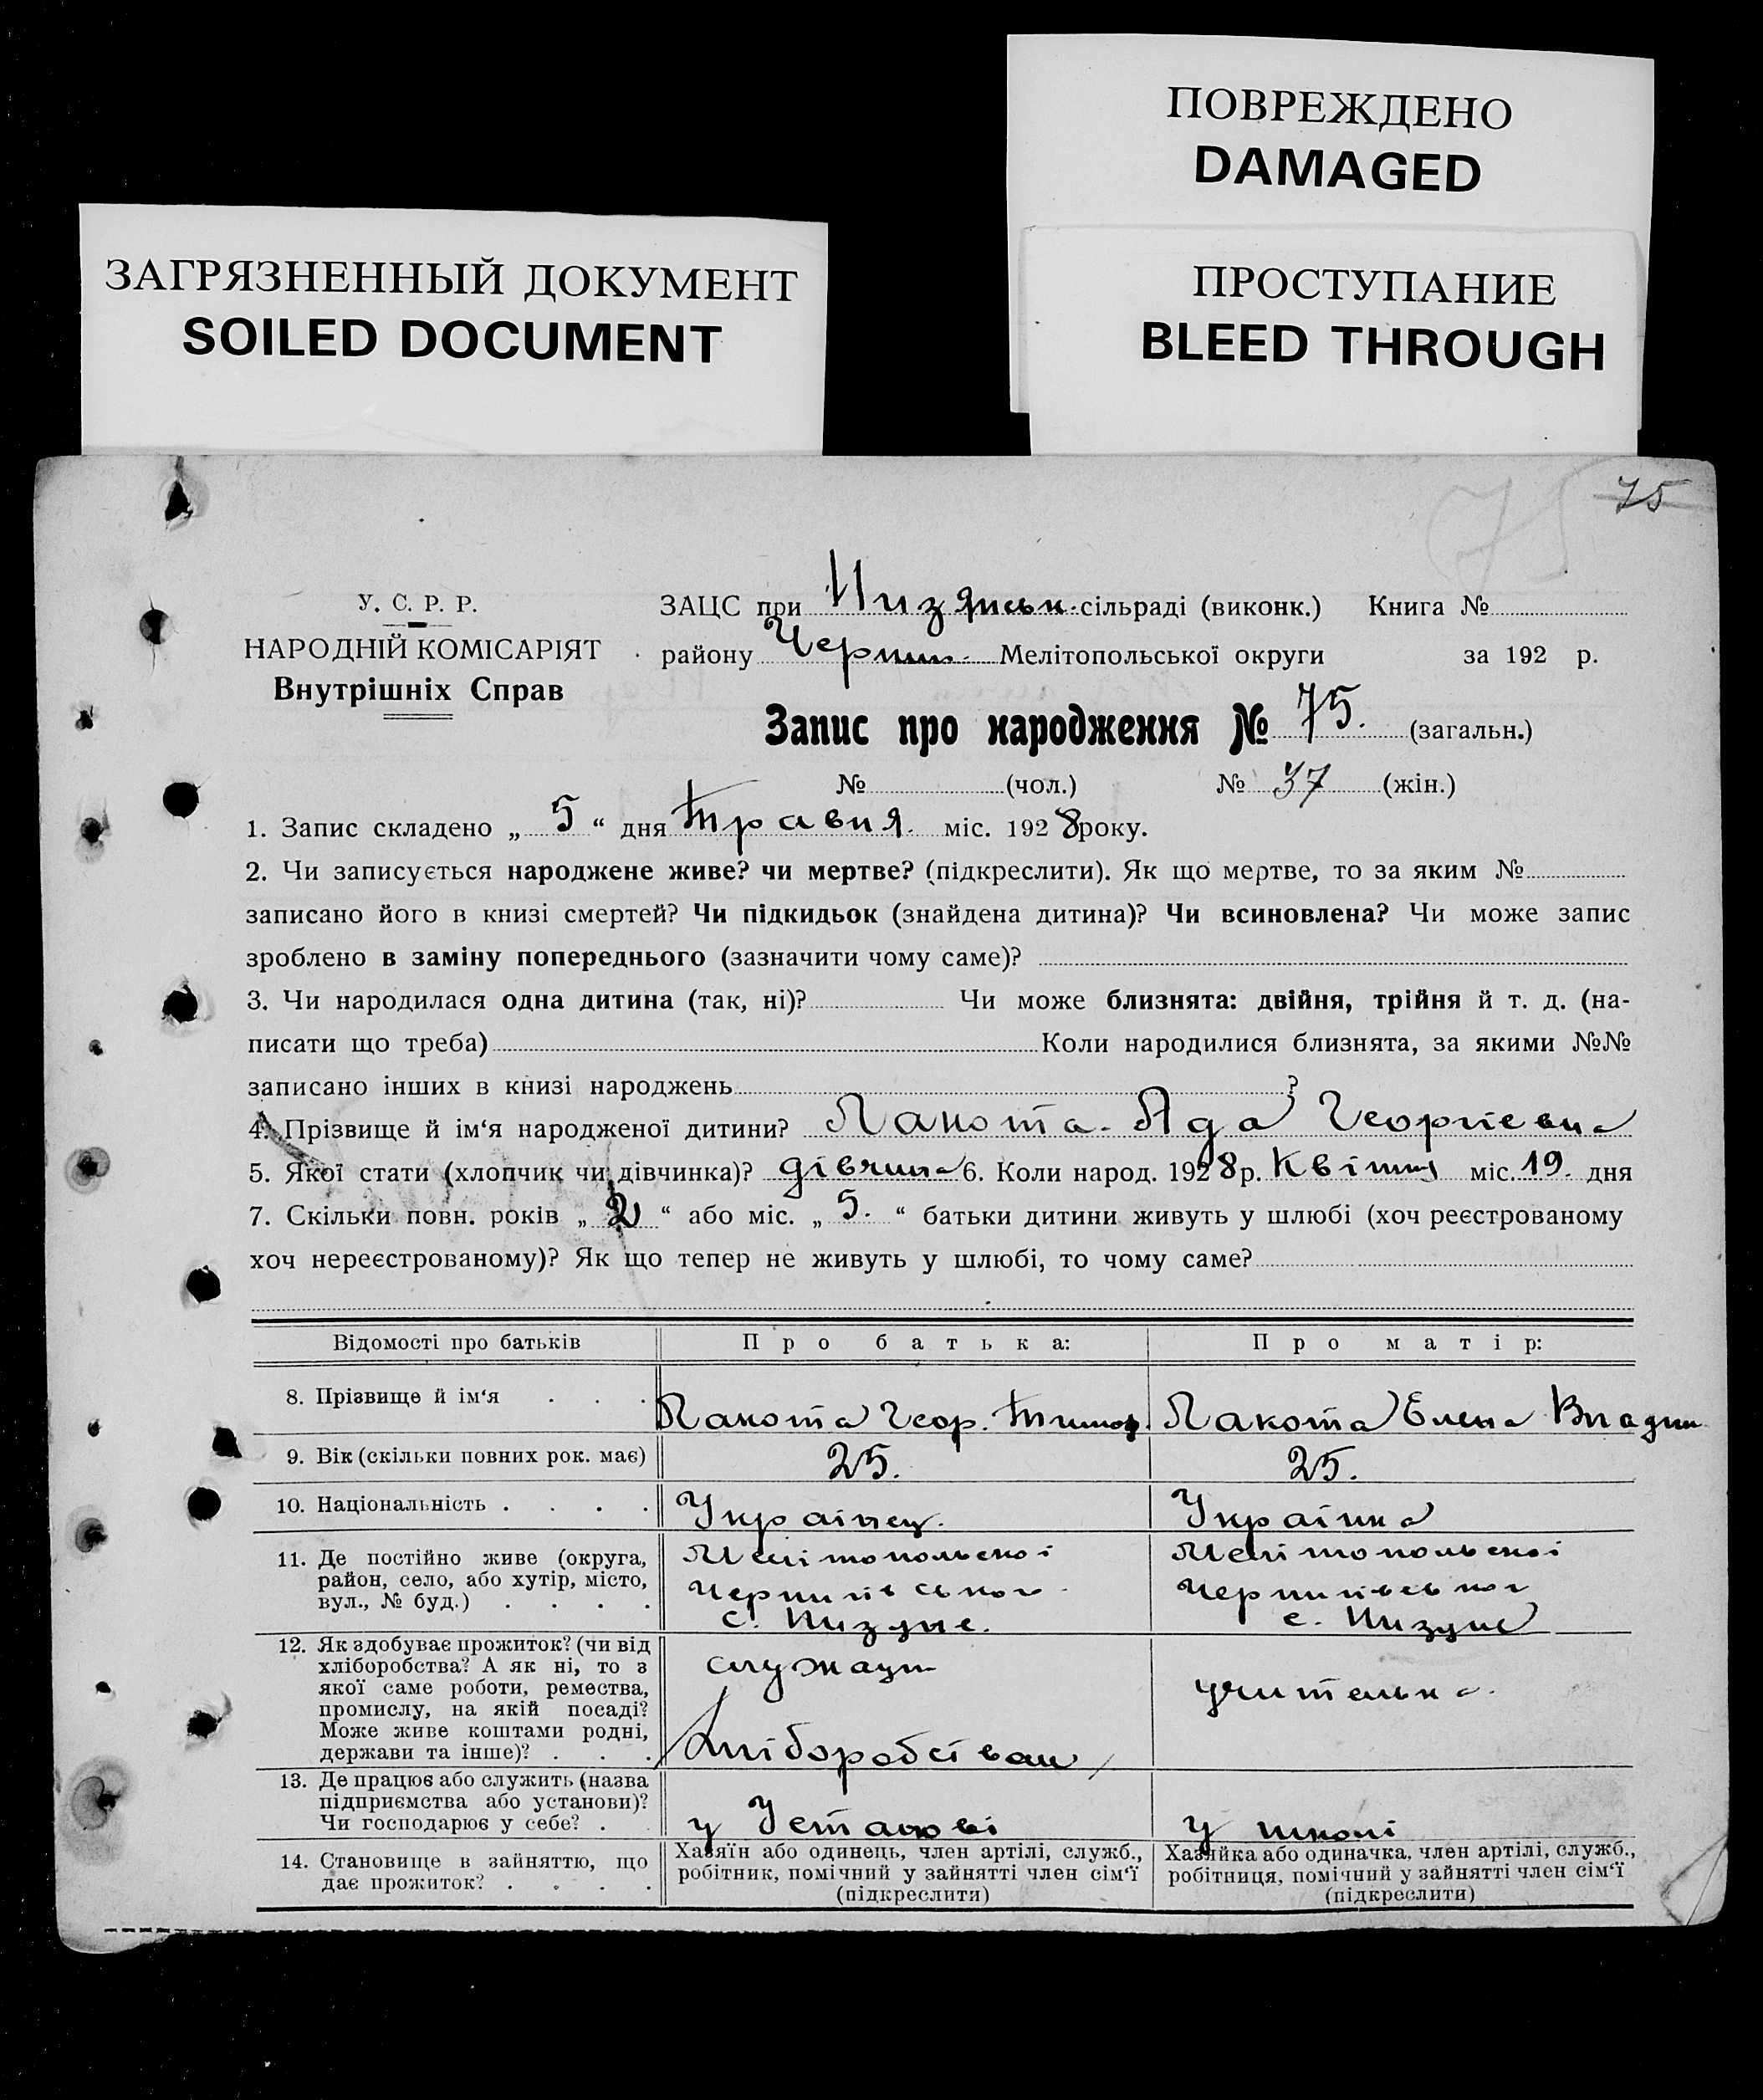 ПОВРЕЖДЕНО
DAMAGED
ЗАГРЯЗНЕННЫЙ ДОКУМЕНТ
SOILED DOCUMENT
ПРОСТУПАНИЕ
BLEED THROUGH
75
75
У. С. Р. Р.
НАРОДНІЙ КОМІСАРІЯТ
Внутрішніх Справ
ЗАЦС при Низянськ. сільраді (виконк.) Книга №
району Черниг. Мелітопольської округи за 192 р.
Запис про народження № 75. (загальн.)
№ (чол.) № 37 (жін.)
1. Запис складено „ 5 “ дня Травня. міс. 1928 року.
2. Чи записується народжене живе? чи мертве? (підкреслити). Як що мертве, то за яким №
записано його в книзі смертей? Чи підкидьок (знайдена дитина)? Чи всиновлена? Чи може запис
зроблено в заміну попереднього (зазначити чому саме)?
3. Чи народилася одна дитина (так, ні)? Чи може близнята: двійня, трійня й т. д. (на-
писати що треба) Коли народилися близнята, за якими №№
записано інших в книзі народжень ?
4. Прізвище й ім‘я народженої дитини? Лакота Ада Георгієвна
5. Якої стати (хлопчик чи дівчинка)? дівчина 6. Коли народ. 1928 р. Квітня міс. 19. дня
7. Скільки повн. років „ 2 “ або міс. „ 5. “ батьки дитини живуть у шлюбі (хоч реєстрованому
хоч нереєстрованому)? Як що тепер не живуть у шлюбі, то чому саме?
Відомості про батьків Про батька: Про матір:
8. Прізвище й ім‘я . . . Лакота Геор. Тимоф. Лакота Елена Владим
9. Вік (скільки повних рок. має) 25. 25.
10. Національність . . . . Українец. Українка
11. Де постійно живе (округа,
район, село, або хутір, місто,
вул., № буд.) . . . .
Мелітопольської
Чернигівського
с. Низяне.
Мелітопольської
Чернигівського
с. Низяне
12. Як здобуває прожиток? (чи від
хліборобства? А як ні, то з
якої саме роботи, ремества,
промислу, на якій посаді?
Може живе коштами родні,
держави та інше)? . . .
служащ
Хліборобством
учителька.
13. Де працює або служить (назва
підприємства або установи)?
Чи господарює у себе? .
у Установі
у школі
14. Становище в зайняттю, що
дає прожиток? . . . .
Хазяїн або одинець, член артілі, служб.,
робітник, помічний у зайнятті член сім‘ї
(підкреслити)
Хазяйка або одиначка, член артілі, служб.,
робітниця, помічний у зайнятті член сім‘ї
(підкреслити)